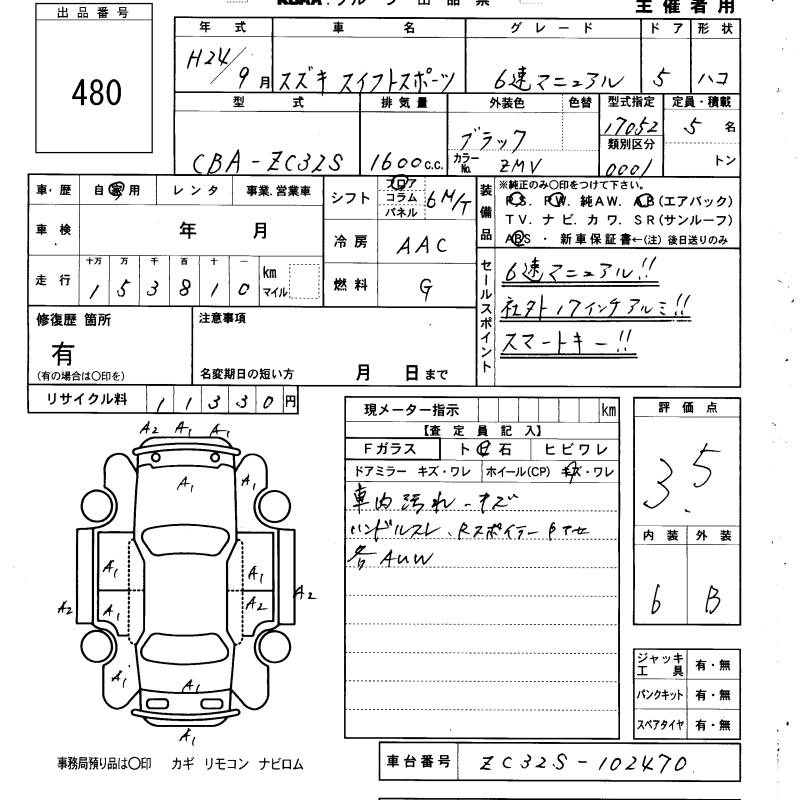 KCAA.グループ 出品票
主催者用
出品番号
480
年式 車名 グレード ドア 形状
H24/9月 スズキ スイフトスポーツ 6速マニュアル 5 ハコ
型式 排気量 外装色 色替 型式指定 定員・積載
CBA-ZC32S 1600c.c. ブラック 17052 5名
カラーNo. ZMV 類別区分 0001 トン
車・歴 自家用 レンタ 事業.営業車
シフト フロア コラム パネル 6M/T
車検 年 月
冷房 AAC
走行 十万 万 千 百 十 一 km マイル
1 5 3 8 1 0
燃料 G
装備品
※純正のみ〇印をつけて下さい。
P.S. P.W. 純AW. A.B(エアバック)
T V. ナビ. カワ. S R(サンルーフ)
ABS ・ 新車保証書←(注) 後日送りのみ
セールスポイント
6速マニュアル!!
社外17インチアルミ!!
スマートキー!!
修復歴 箇所
有
(有の場合は〇印を)
注意事項
名変期日の短い方 月 日まで
リサイクル料 1 1 3 3 0 円
A2 A1 A1
A1 A1
A1 A1
A2 A1 A2 A2
A1 A1
A1
現メーター指示 km
【査定員記入】
Fガラス ト 石 ヒビワレ
ドアミラー キズ・ワレ ホイール(CP) キズ・ワレ
車内汚れ-キズ
ハンドルスレ、Rスポイラー
各AUW
評価点
3.5
内装 外装
6 B
ジャッキ工具 有・無
パンクキット 有・無
スペアタイヤ 有・無
事務局預り品は〇印 カギ リモコン ナビロム
車台番号 ZC32S-102470